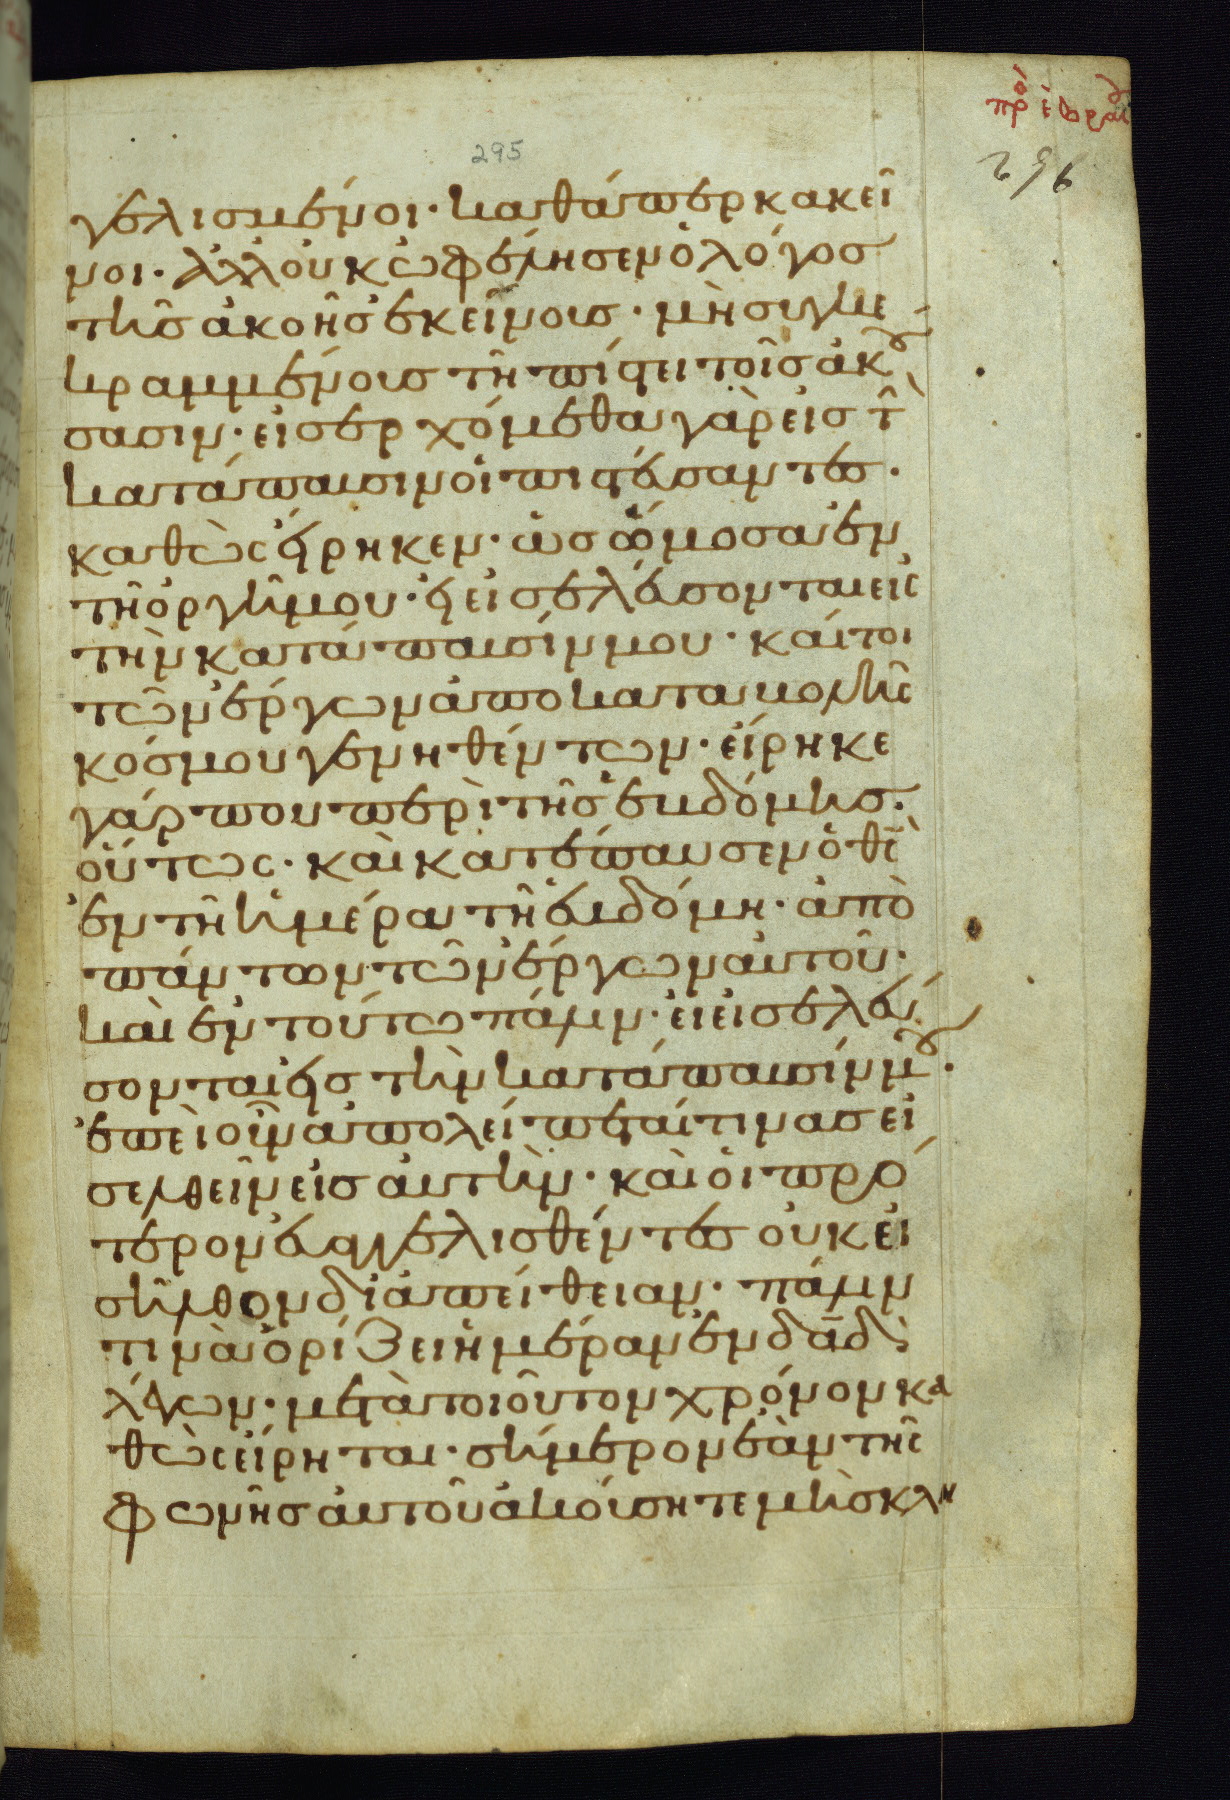 πρὸ ἑβραί
295
296
γελισμένοι· καθάπερ κακεῖ
νοι· ἀλλ' οὐκ ὠφέλησεν ὁ λόγος
τῆς ἀκοῆς ἐκείνοις· μὴ συγκε
κραμμένοις τῆ πίστει τοῖς ἀκου
σασιν· εἰσερχόμεθα γὰρ εἰς τὴν
κατάπαυσιν οἱ πιστεύσαντες·
καθὼς εἴρηκεν· ὡς ὤμοσα ἐν
τῆ ὀργῆ μου· εἰ εἰσελεύσονται εἰς
τὴν κατάπαυσίν μου· καίτοι
τῶν ἔργων ἀπὸ καταβολῆς
κόσμου γενηθέντων· εἴρηκε
γάρ που περὶ τῆς ἑβδόμης·
οὕτως· καὶ κατέπαυσεν ὁ θς
ἐν τῆ ἡμέρα τῆ ἑβδόμη· ἀπὸ
πάντων τῶν ἔργων αὐτοῦ·
καὶ ἐν τούτω πάλιν· εἰ εἰσελεύ
σονται εἰς τὴν κατάπαυσίν μου·
ἐπεὶ οὖν ἀπολείπεταί τινας εἰ
σελθεῖν εἰς αὐτὴν· καὶ οἱ πρό
τερον εὐαγγελισθέντες οὐκ εἰ
σῆλθον δι' ἀπείθειαν· πάλιν
τινὰ ὁρίζει ἡμέραν ἐν δαδ
λέγων· μετὰ τοιοῦτον χρόνον κα
θὼς εἴρηται· σήμερον ἐὰν τῆς
φωνῆς αὐτοῦ ἀκούσητε μὴ σκλη